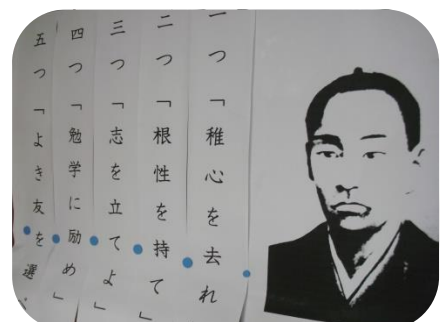 一つ「稚心を去れ
二つ「根性を持て」
三つ「志を立てよ」
四つ「勉学に励め」
五つ「よき友を選